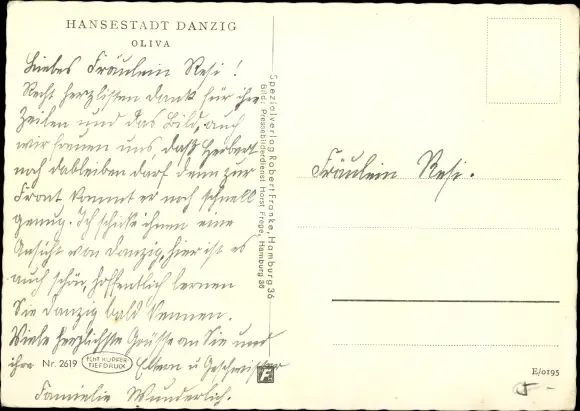 HANSESTADT DANZIG
OLIVA
Liebes Fräulein Resi !
Recht herzlichen Dank für ihre
Zeilen und das Bild, auch
wir freuen uns, daß Herbert
noch dableiben darf denn zur
Front kommt er noch schnell
genug. Ich schicke ihnen eine
Ansicht von Danzig, hier ist es
auch schön, hoffentlich lernen
Sie Danzig bald kennen.
Viele herzlichste Grüsse an Sie und
ihre Eltern u Geschwister
Familie Wunderlich.
Nr. 2619
ECHT KUPFER
TIEFDRUCK
Spezialverlag Robert Franke, Hamburg 36
Bild: Pressebilderdienst Horst Frege, Hamburg 36
F
Fräulein Resi.
E/0195